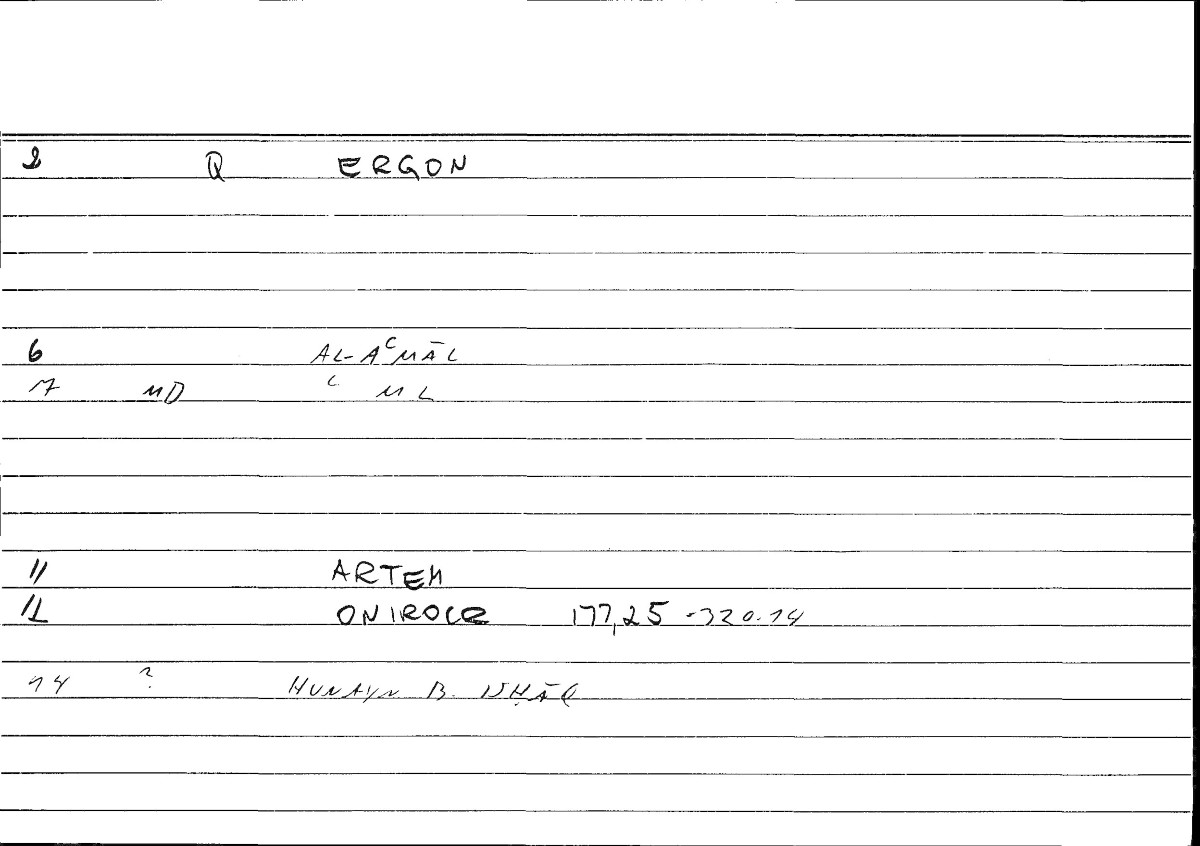 2 Q ERGON
6 AL-AʿMĀL
17 MD ʿ M L
11 ARTEM
12 ONIROCR 177,25 - 320.14
14 ? HUNAYN B. ISḤĀQ